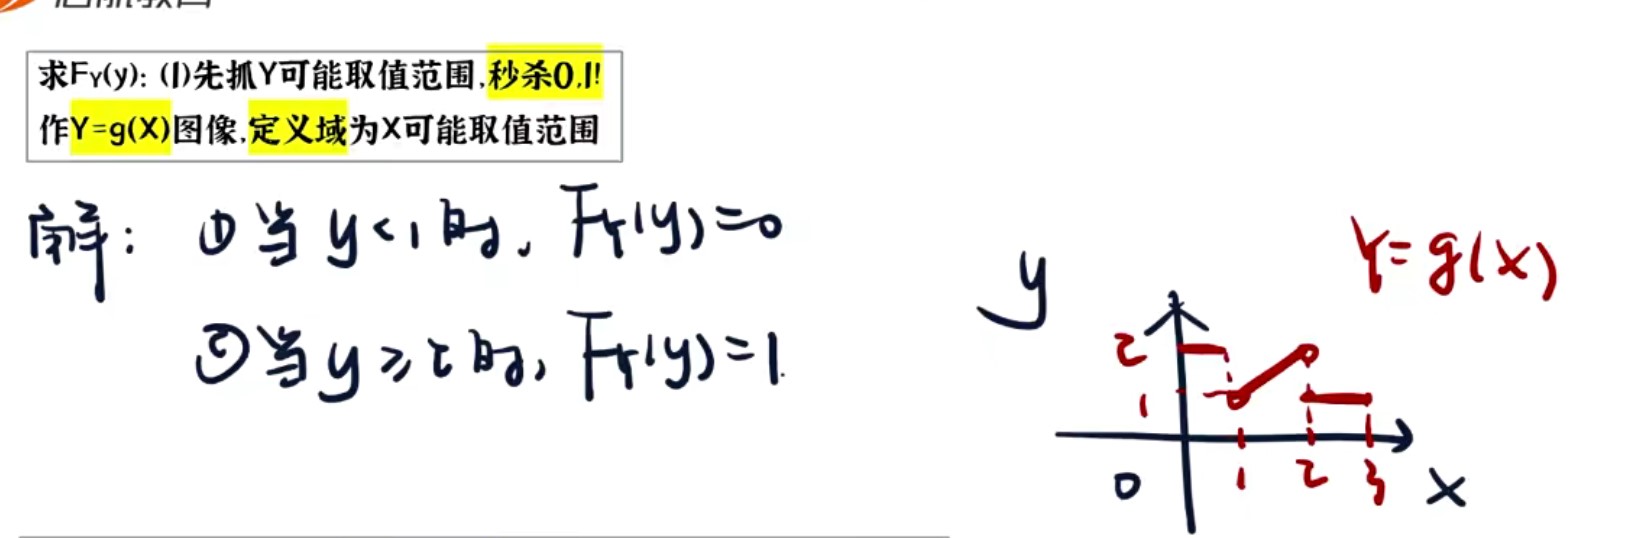 求FY(y): (1)先抓Y可能取值范围,秒杀0,1!
作Y=g(X)图像,定义域为X可能取值范围
解: ①当 y<1 时, FY(y)=0
②当 y≥2 时, FY(y)=1.
Y=g(X)
y
2
1
0
1 2 3 x